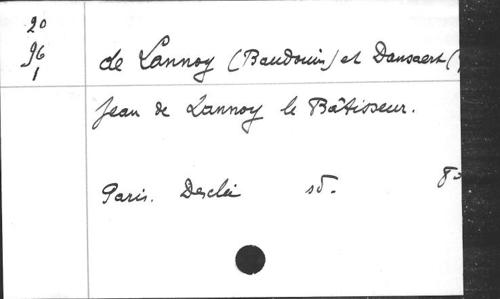 20
96
1
de Lannoy (Baudouin) et Dansaert (
Jean de Lannoy le Bâtisseur.
Paris. Desclée sd. 8°